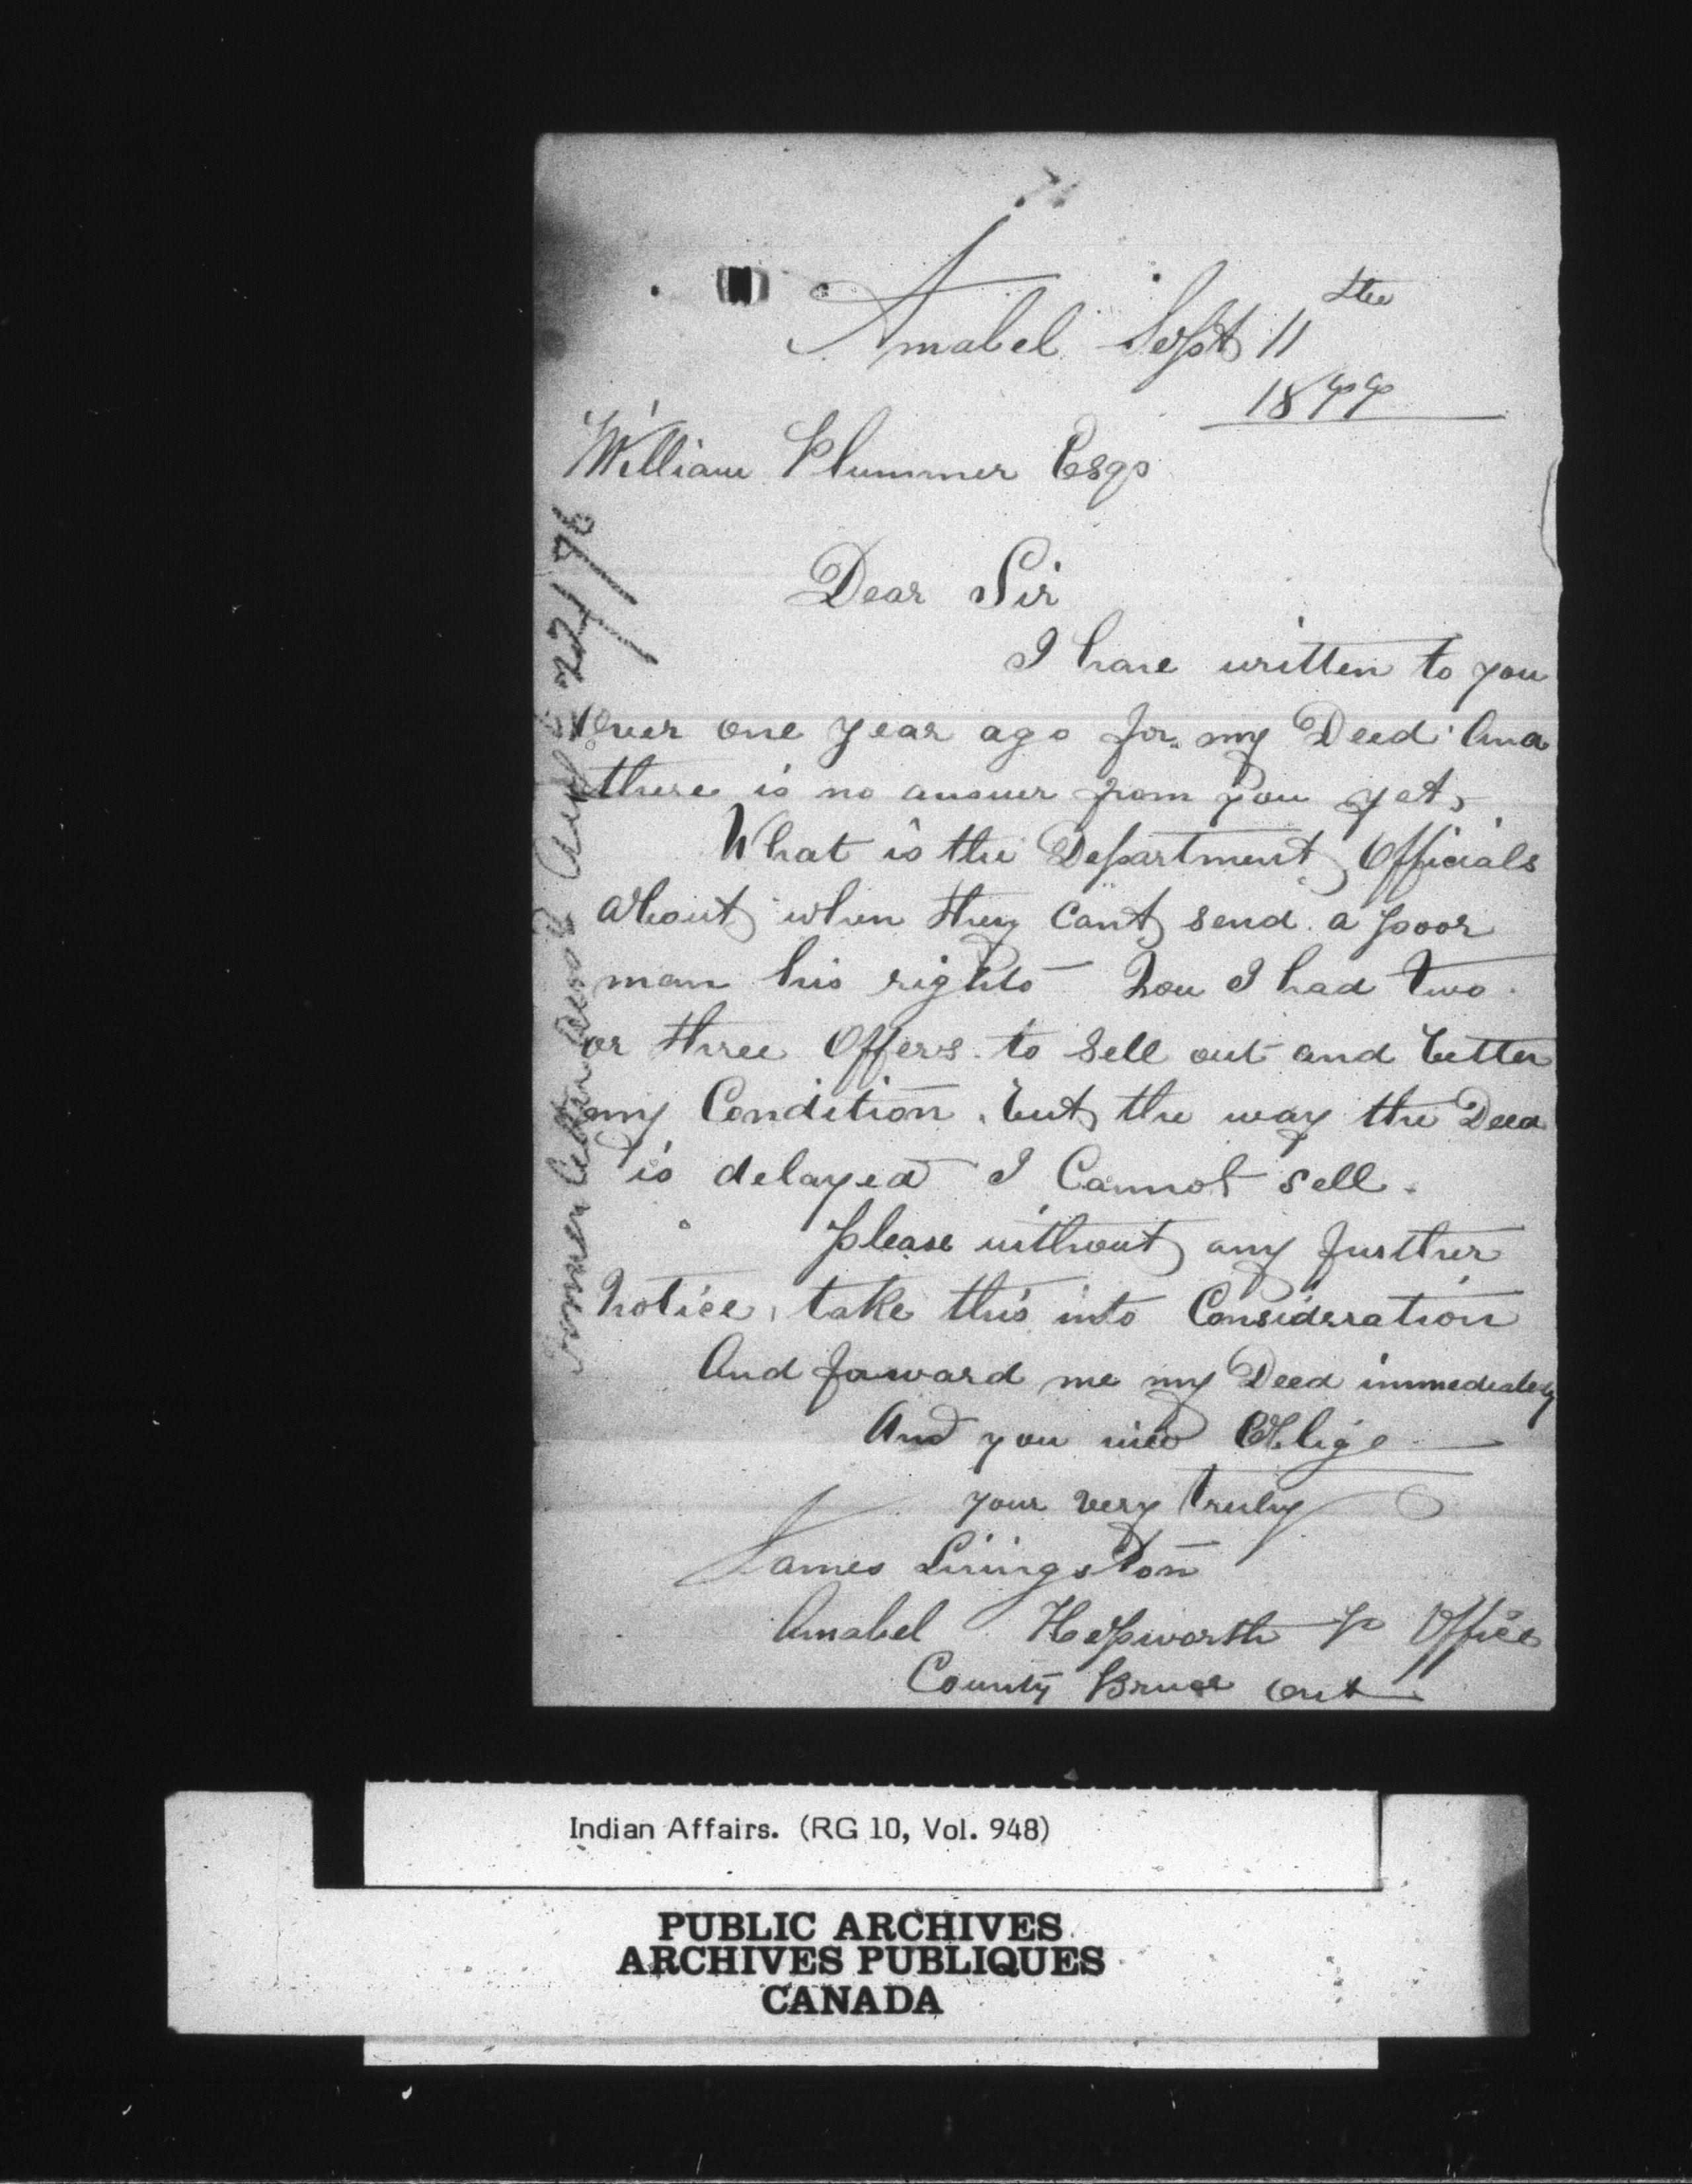 Amabel Sept 11th
1877
William Plummer Esqr
Dear Sir
I have written to you
over one year ago for my Deed And
there is no answer from you yet,
What is the Department Officials
about when they cant send a poor
man his rights - Now I had two
or three Offers to Sell out and better
my Condition, but the way the Deed
is delayed I Cannot sell.
please without any further
Notice, take this into Consideration
And forward me my Deed immediately
And you will Oblige
your very truly
James Livingston
Amabel Hepworth P Office
County Bruce Ont
former letter 22/76
Indian Affairs. (RG 10, Vol. 948)
PUBLIC ARCHIVES
ARCHIVES PUBLIQUES
CANADA